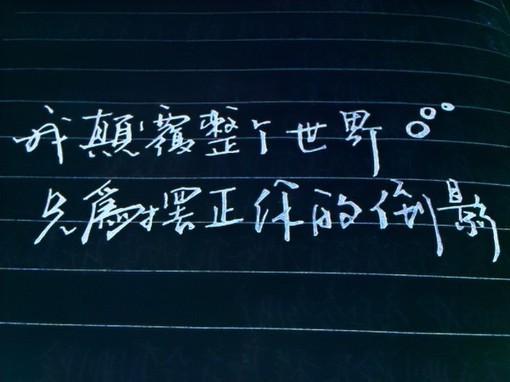 我顛覆整个世界。。。
只為擺正你的倒影